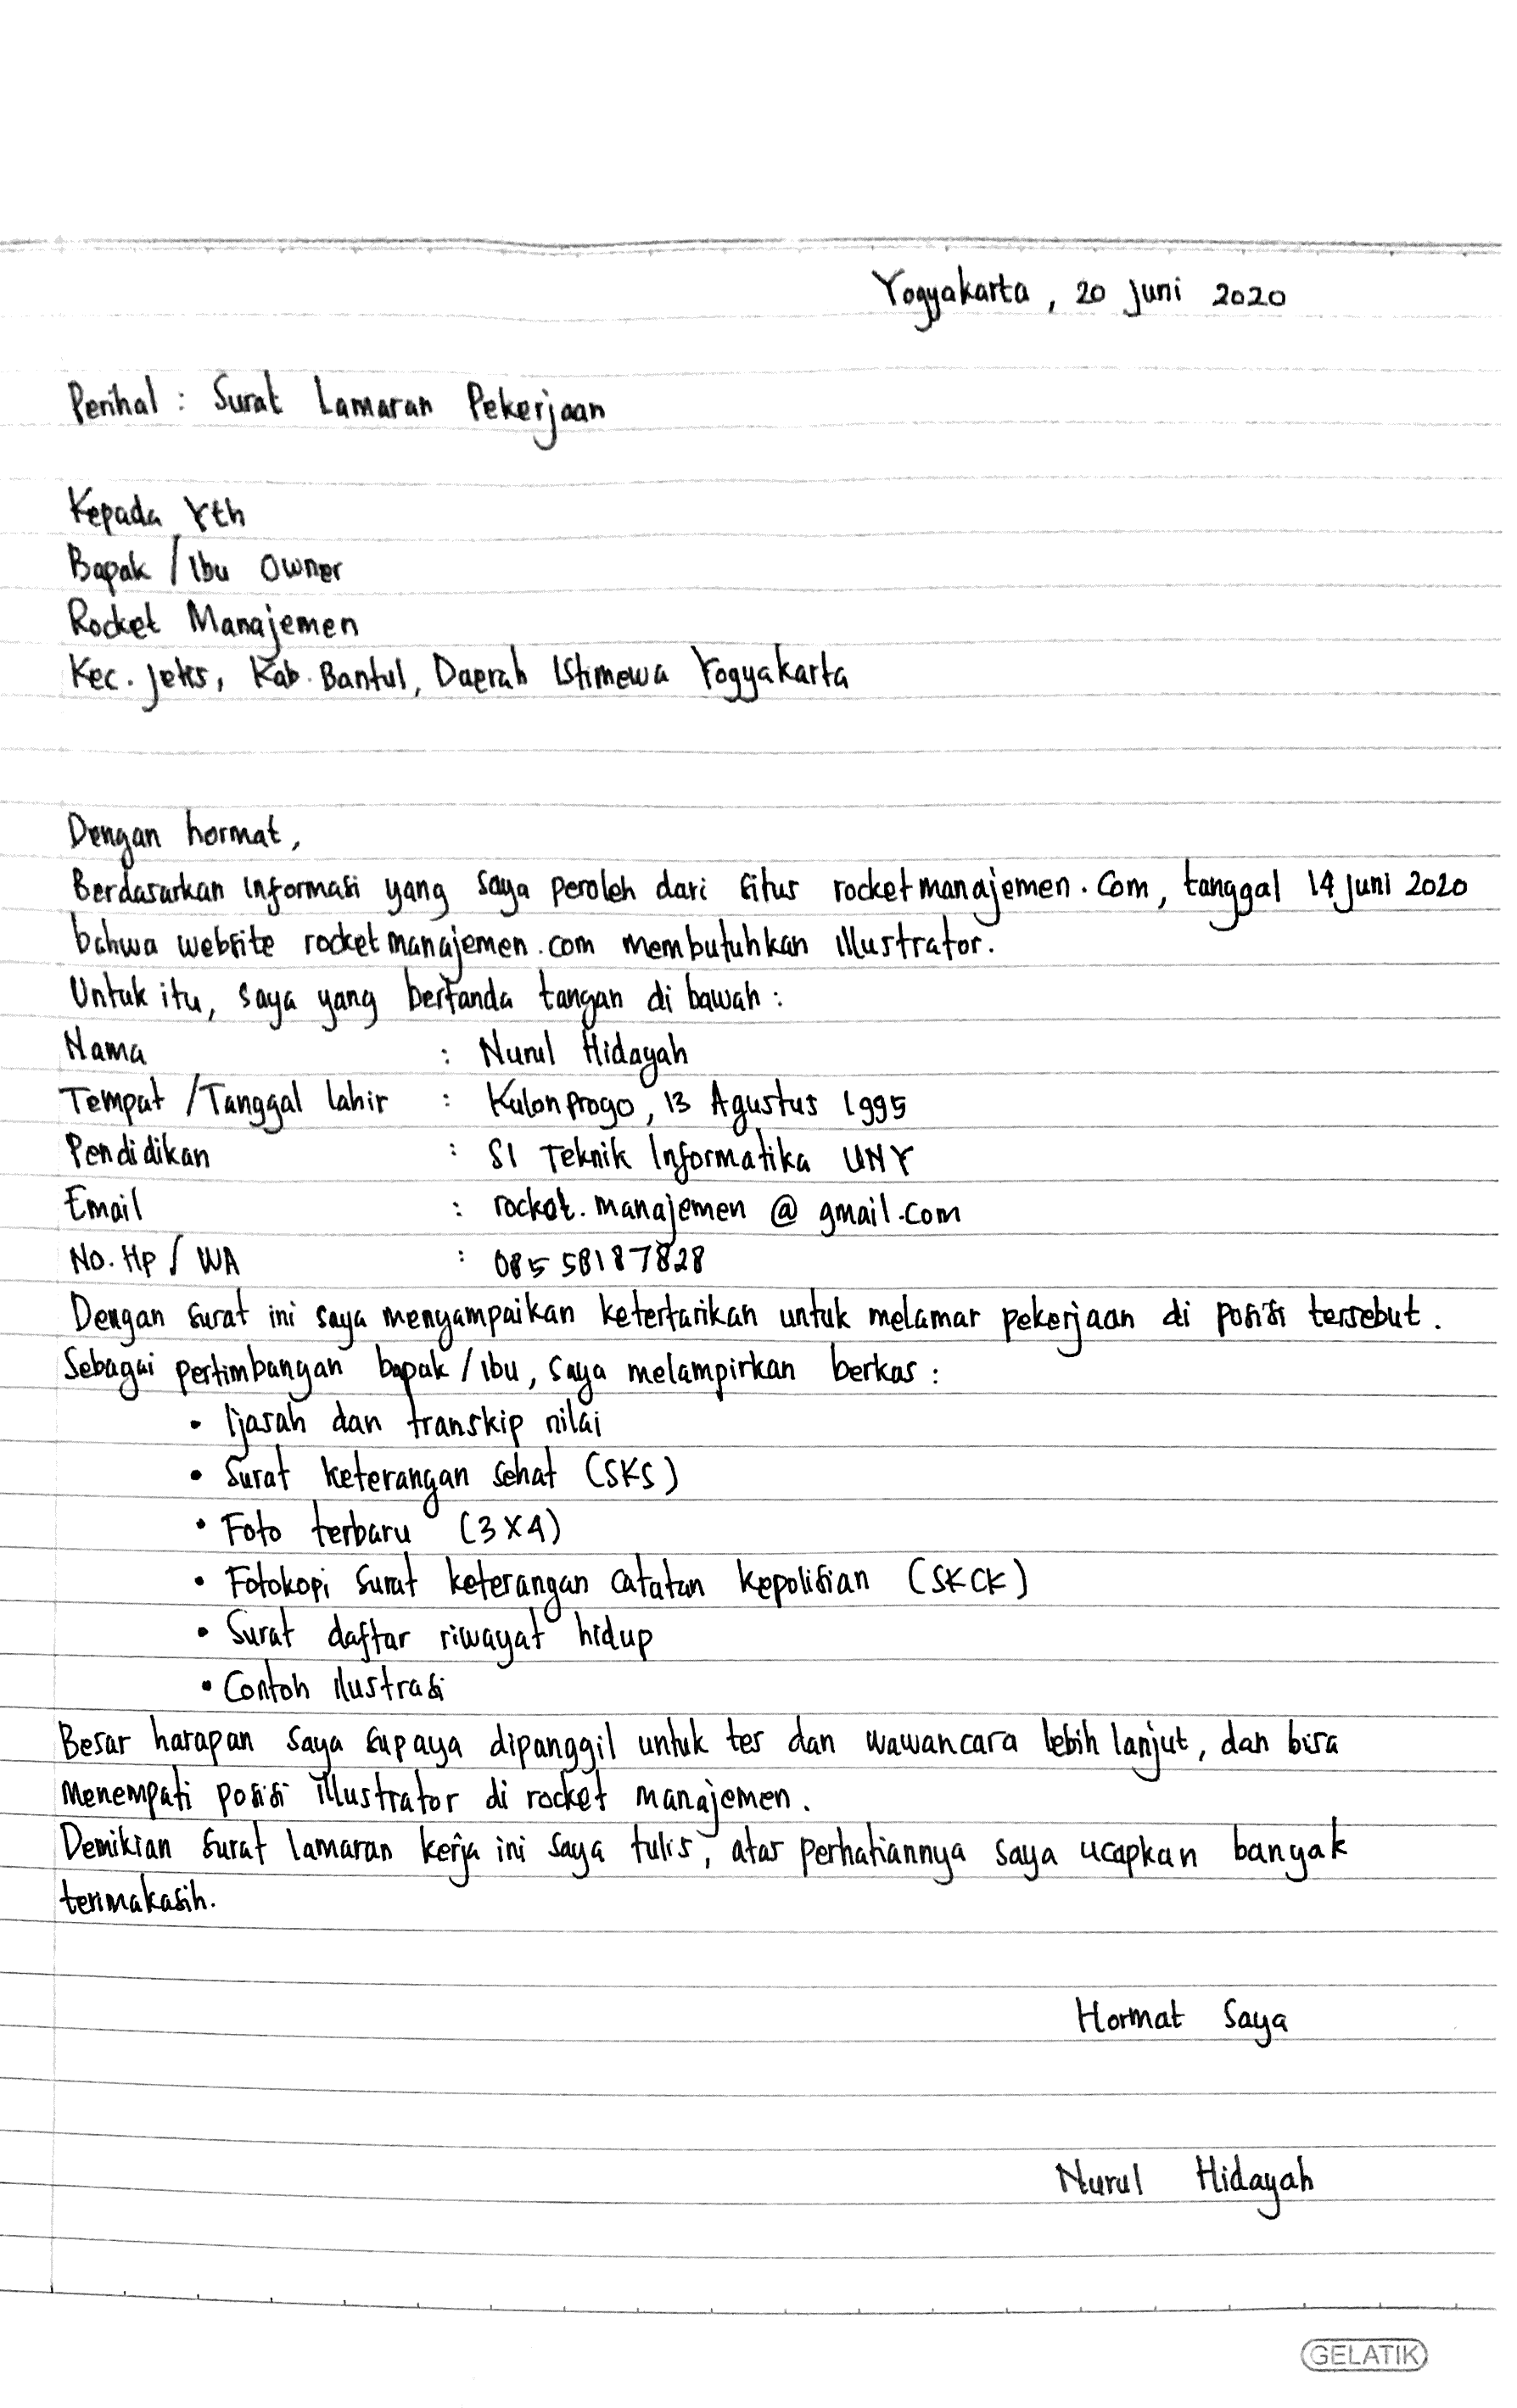 Yogyakarta, 20 Juni 2020
Perihal : Surat Lamaran Pekerjaan
Kepada Yth
Bapak / Ibu Owner
Rocket Manajemen
Kec. Jetis, Kab. Bantul, Daerah Istimewa Yogyakarta
Dengan hormat,
Berdasarkan informasi yang saya peroleh dari situs rocketmanajemen.com, tanggal 14 Juni 2020
bahwa website rocketmanajemen.com membutuhkan illustrator.
Untuk itu, saya yang bertanda tangan di bawah :
Nama : Nurul Hidayah
Tempat / Tanggal lahir : Kulonprogo, 13 Agustus 1995
Pendidikan : S1 Teknik Informatika UNY
Email : rocket.manajemen @ gmail.com
No. Hp / WA : 08558187828
Dengan surat ini saya menyampaikan ketertarikan untuk melamar pekerjaan di posisi tersebut.
Sebagai pertimbangan bapak / ibu, saya melampirkan berkas :
• Ijasah dan transkip nilai
• Surat keterangan sehat (SKS)
• Foto terbaru (3X4)
• Fotokopi surat keterangan catatan kepolisian (SKCK)
• Surat daftar riwayat hidup
• Contoh ilustrasi
Besar harapan saya supaya dipanggil untuk tes dan wawancara lebih lanjut, dan bisa
menempati posisi illustrator di rocket manajemen.
Demikian surat lamaran kerja ini saya tulis, atas perhatiannya saya ucapkan banyak
terimakasih.
Hormat Saya
Nurul Hidayah
GELATIK